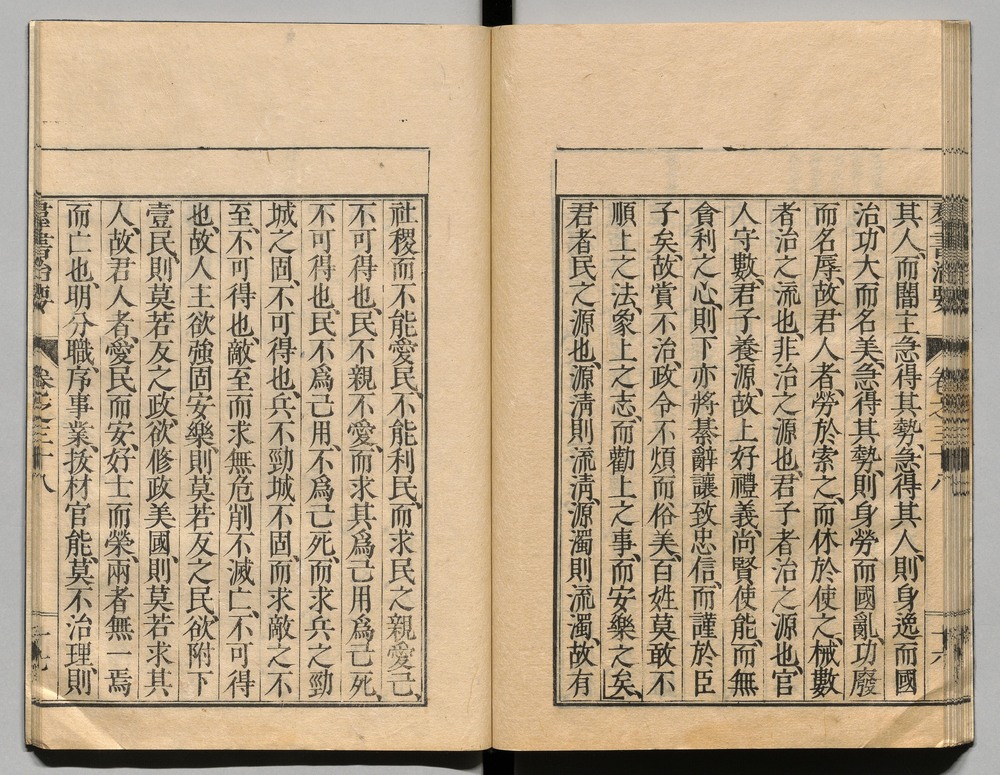 其人、而闇主急得其勢、急得其人、則身逸而國
治、功大而名美、急得其勢、則身勞而國亂、功廢
而名辱、故君人者、勞於索之、而休於使之、械數
者治之流也、非治之源也、君子者治之源也、官
人守數、君子養源、故上好禮義、尚賢使能、而無
貪利之心、則下亦將綦辭讓致忠信、而謹於臣
子矣、故賞不治、政令不煩而俗美、百姓莫敢不
順上之法象上之志、而勸上之事、而安樂之矣、
君者民之源也、源淸則流淸、源濁則流濁、故有
社稷而不能愛民、不能利民、而求民之親愛己、
不可得也、民不親不愛、而求其爲己用爲己死、
不可得也、民不爲己用、不爲己死、而求兵之勁
城之固、不可得也、兵不勁城不固、而求敵之不
至、不可得也、敵至而求無危削不滅亡、不可得
也、故人主欲強固安樂、則莫若反之民、欲附下
壹民、則莫若反之政、欲修政美國、則莫若求其
人、故君人者、愛民而安、好士而榮、兩者無一焉
而亡也、明分職、序事業、拔材官能、莫不治理、則
群書治要
卷之三十八
十九